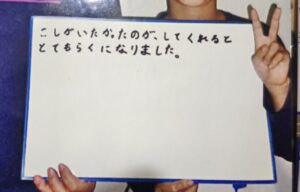 こしがいたかったのが、してくれると
とてもらくになりました。